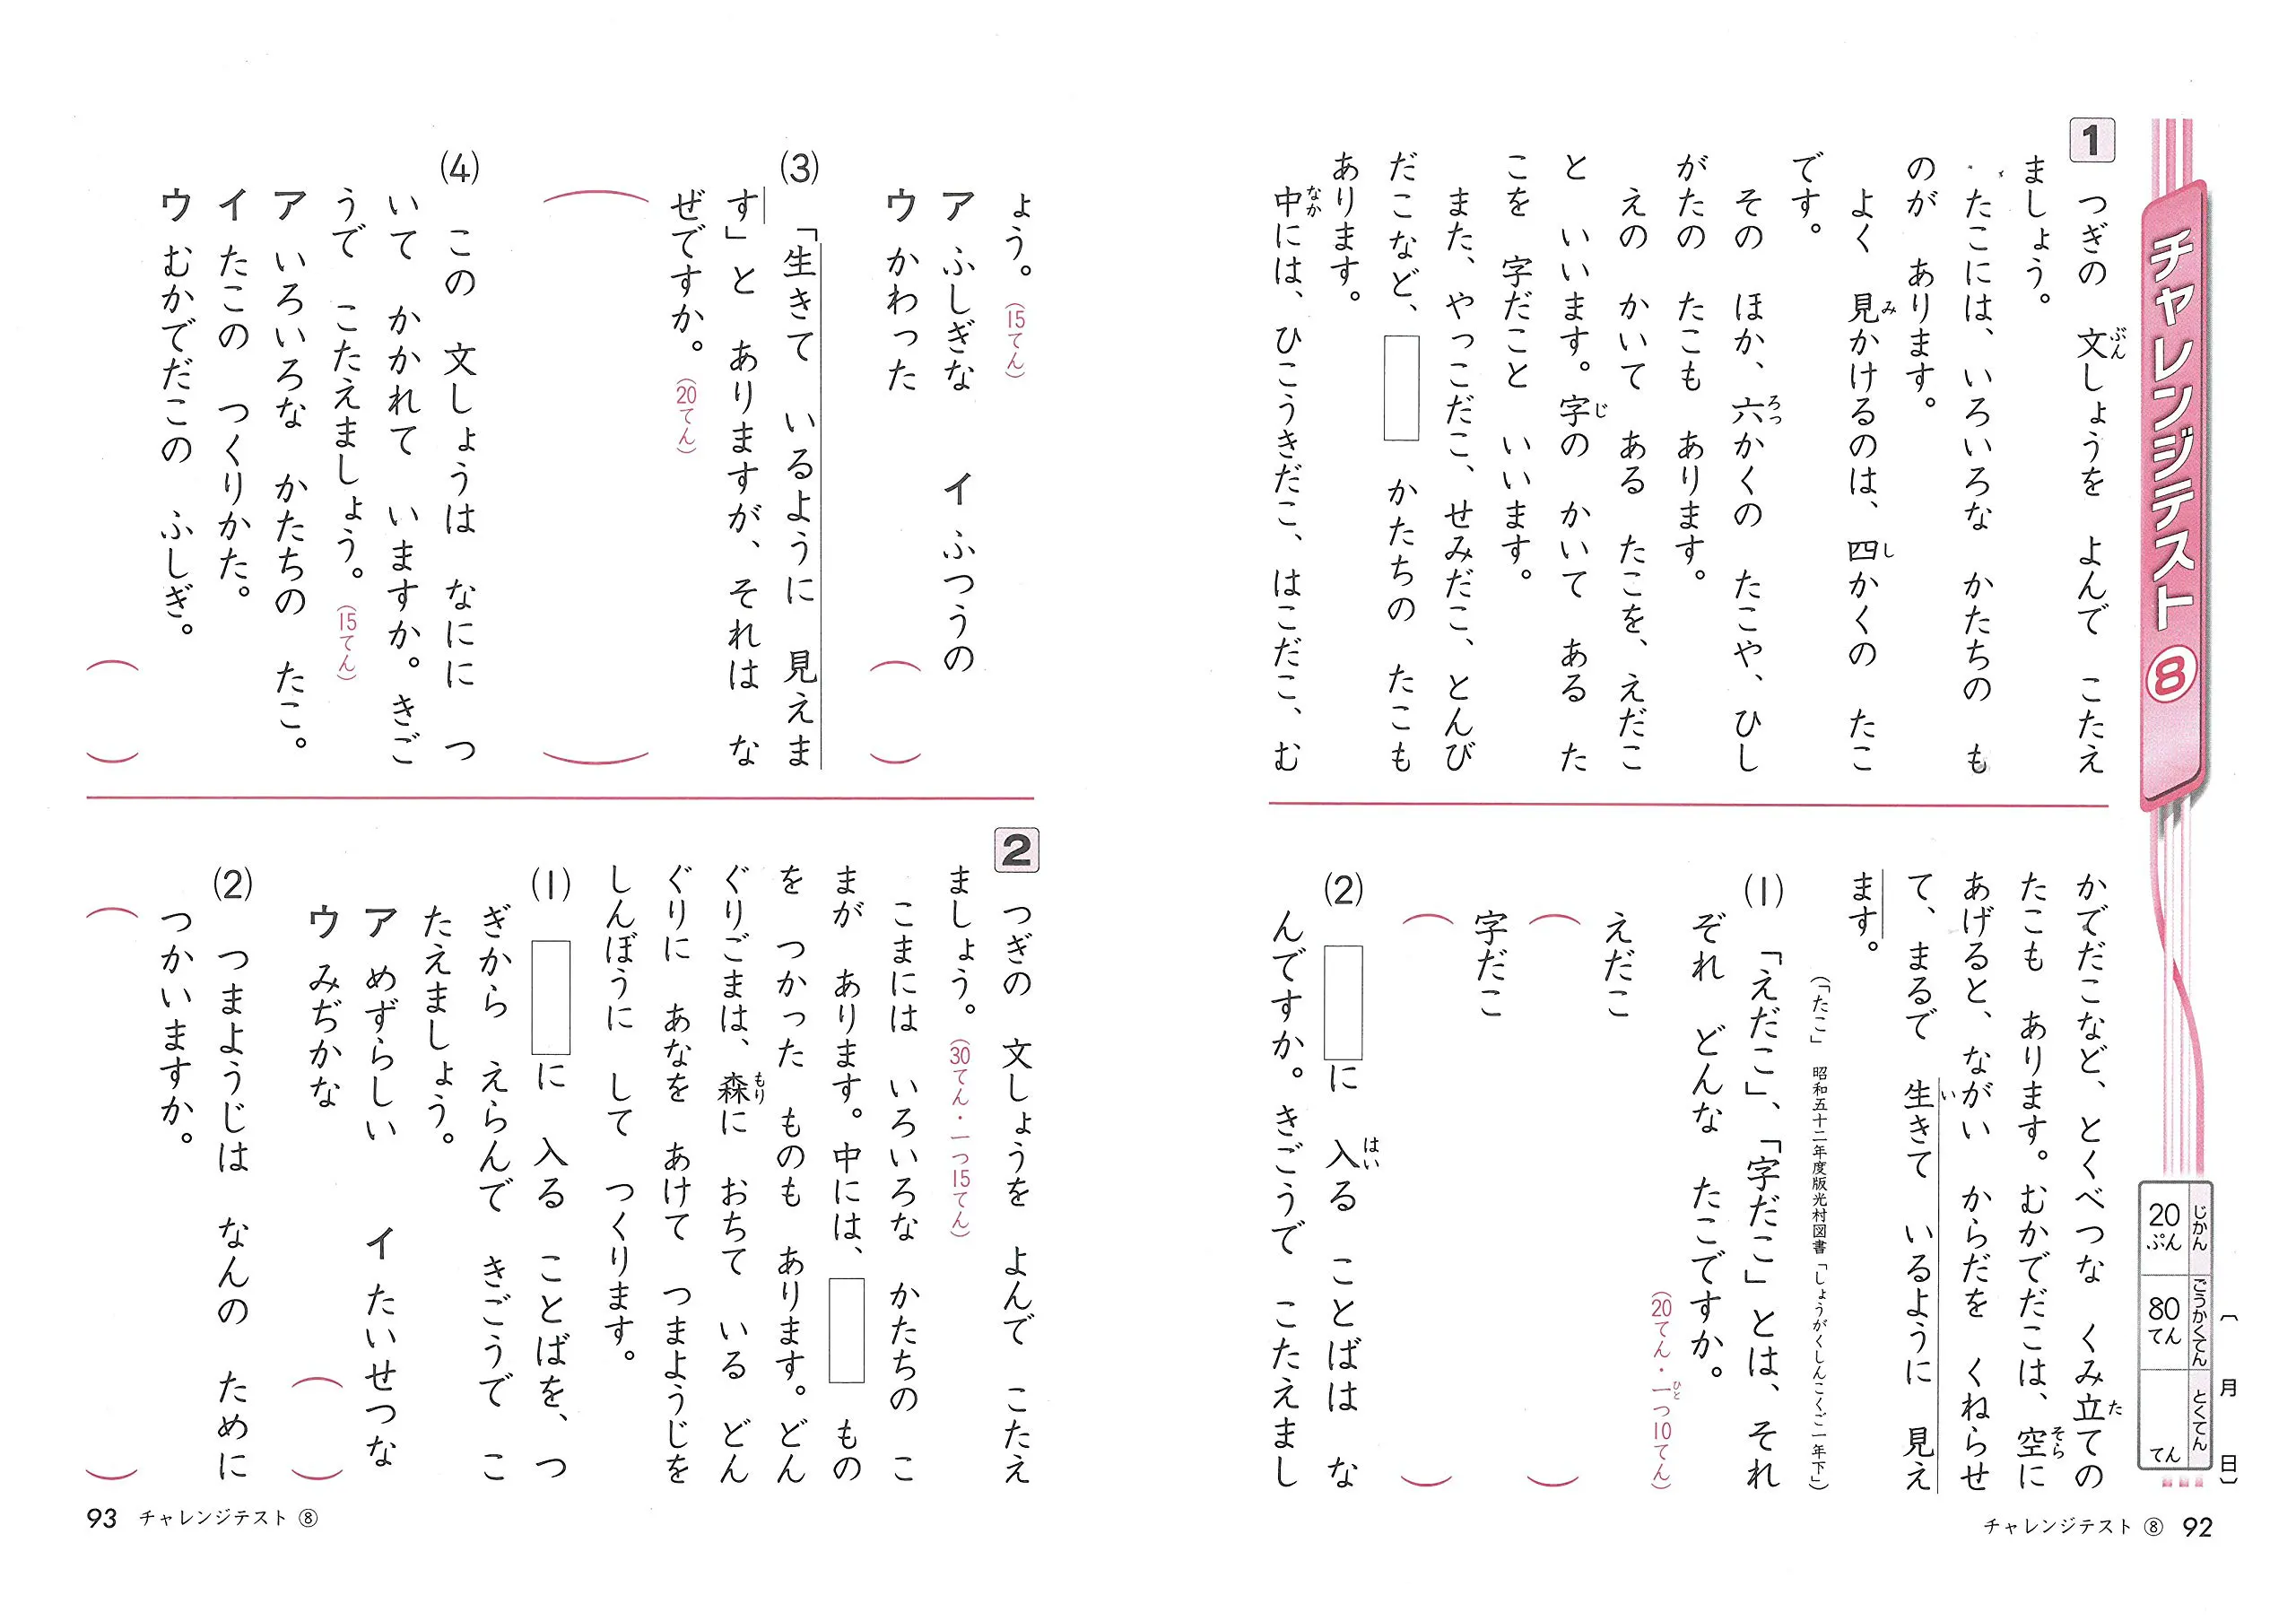 チャレンジテスト⑧
じかん 20ぷん
ごうかくてん 80てん
とくてん てん
〔 月 日〕
1 つぎの 文しょうを よんで こたえ
ましょう。
たこには、いろいろな かたちの も
のが あります。
よく 見かけるのは、四かくの たこ
です。
その ほか、六かくの たこや、ひし
がたの たこも あります。
えの かいて ある たこを、えだこ
と いいます。字の かいて ある た
こを 字だこと いいます。
また、やっこだこ、せみだこ、とんび
だこなど、 かたちの たこも
あります。
中には、ひこうきだこ、はこだこ、む
かでだこなど、とくべつな くみ立ての
たこも あります。むかでだこは、空に
あげると、ながい からだを くねらせ
て、まるで 生きて いるように 見え
ます。
(「たこ」 昭和五十二年度版光村図書「しょうがくしんこくご一年下」)
(1) 「えだこ」、「字だこ」とは、それ
ぞれ どんな たこですか。
(20てん・一つ10てん)
えだこ
字だこ
(2) に 入る ことばは な
んですか。きごうで こたえまし
ょう。(15てん)
ア ふしぎな イ ふつうの
ウ かわった
(3) 「生きて いるように 見えま
す」と ありますが、それは な
ぜですか。(20てん)
(4) この 文しょうは なにに つ
いて かかれて いますか。きご
うで こたえましょう。(15てん)
ア いろいろな かたちの たこ。
イ たこの つくりかた。
ウ むかでだこの ふしぎ。
2 つぎの 文しょうを よんで こたえ
ましょう。(30てん・一つ15てん)
こまには いろいろな かたちの こ
まが あります。中には、 もの
を つかった ものも あります。どん
ぐりごまは、森に おちて いる どん
ぐりに あなを あけて つまようじを
しんぼうに して つくります。
(1) に 入る ことばを、つ
ぎから えらんで きごうで こ
たえましょう。
ア めずらしい イ たいせつな
ウ みぢかな
(2) つまようじは なんの ために
つかいますか。
チャレンジテスト⑧ 92
93 チャレンジテスト⑧